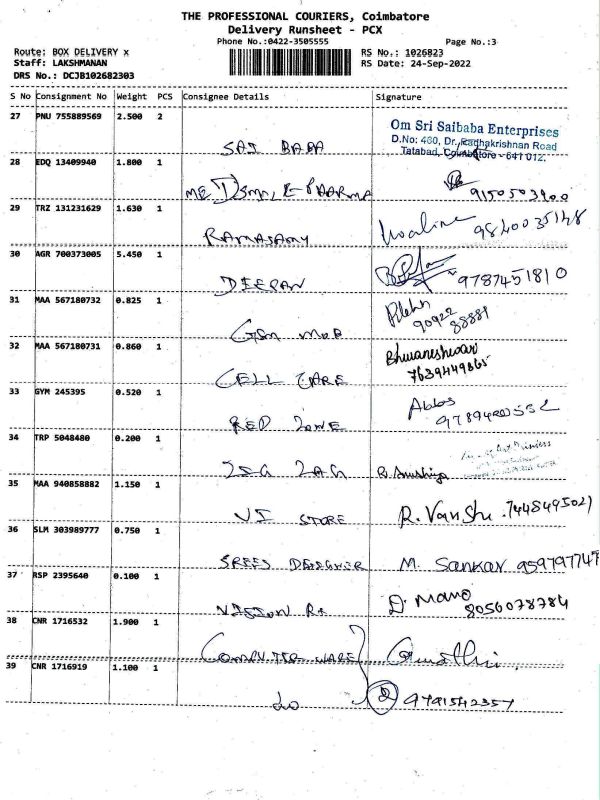 THE PROFESSIONAL COURIERS, Coimbatore
Delivery Runsheet - PCX
Phone No.:0422-3505555 Page No.:3
Route: BOX DELIVERY x RS No.: 1026823
Staff: LAKSHMANAN RS Date: 24-Sep-2022
DRS No.: DCJB102682303
S No Consignment No Weight PCS Consignee Details Signature
27 PNU 755889569 2.500 2
SAI BABA
Om Sri Saibaba Enterprises
D.No: 460, Dr. Radhakrishnan Road
Tatabad, Coimbatore - 641 012.
28 EDQ 13409940 1.800 1
9150503900
29 TRZ 131231629 1.630 1
RAMASAMY 9840035148
30 AGR 700373005 5.450 1
DEEPAN 9787451810
31 MAA 567180732 0.825 1
GSM MOB 90922
88881
32 MAA 567180731 0.860 1
CELL CARE Bhuvaneshwar
7639449865
33 GYM 245395 0.520 1
RED ZONE Abbs
34 TRP 5048480 0.200 1
ZIG ZAG R. Anushiya
35 MAA 940858882 1.150 1
VI STORE R. Vanshi 7448495021
36 SLM 303989777 0.750 1
SREES DESIGNER M. Sankar 959797747
37 RSP 2395640 0.100 1
VISION RX D. Mano
8056078784
38 CNR 1716532 1.900 1
COMPUTER CARE
39 CNR 1716919 1.100 1
Do 2 9791542357